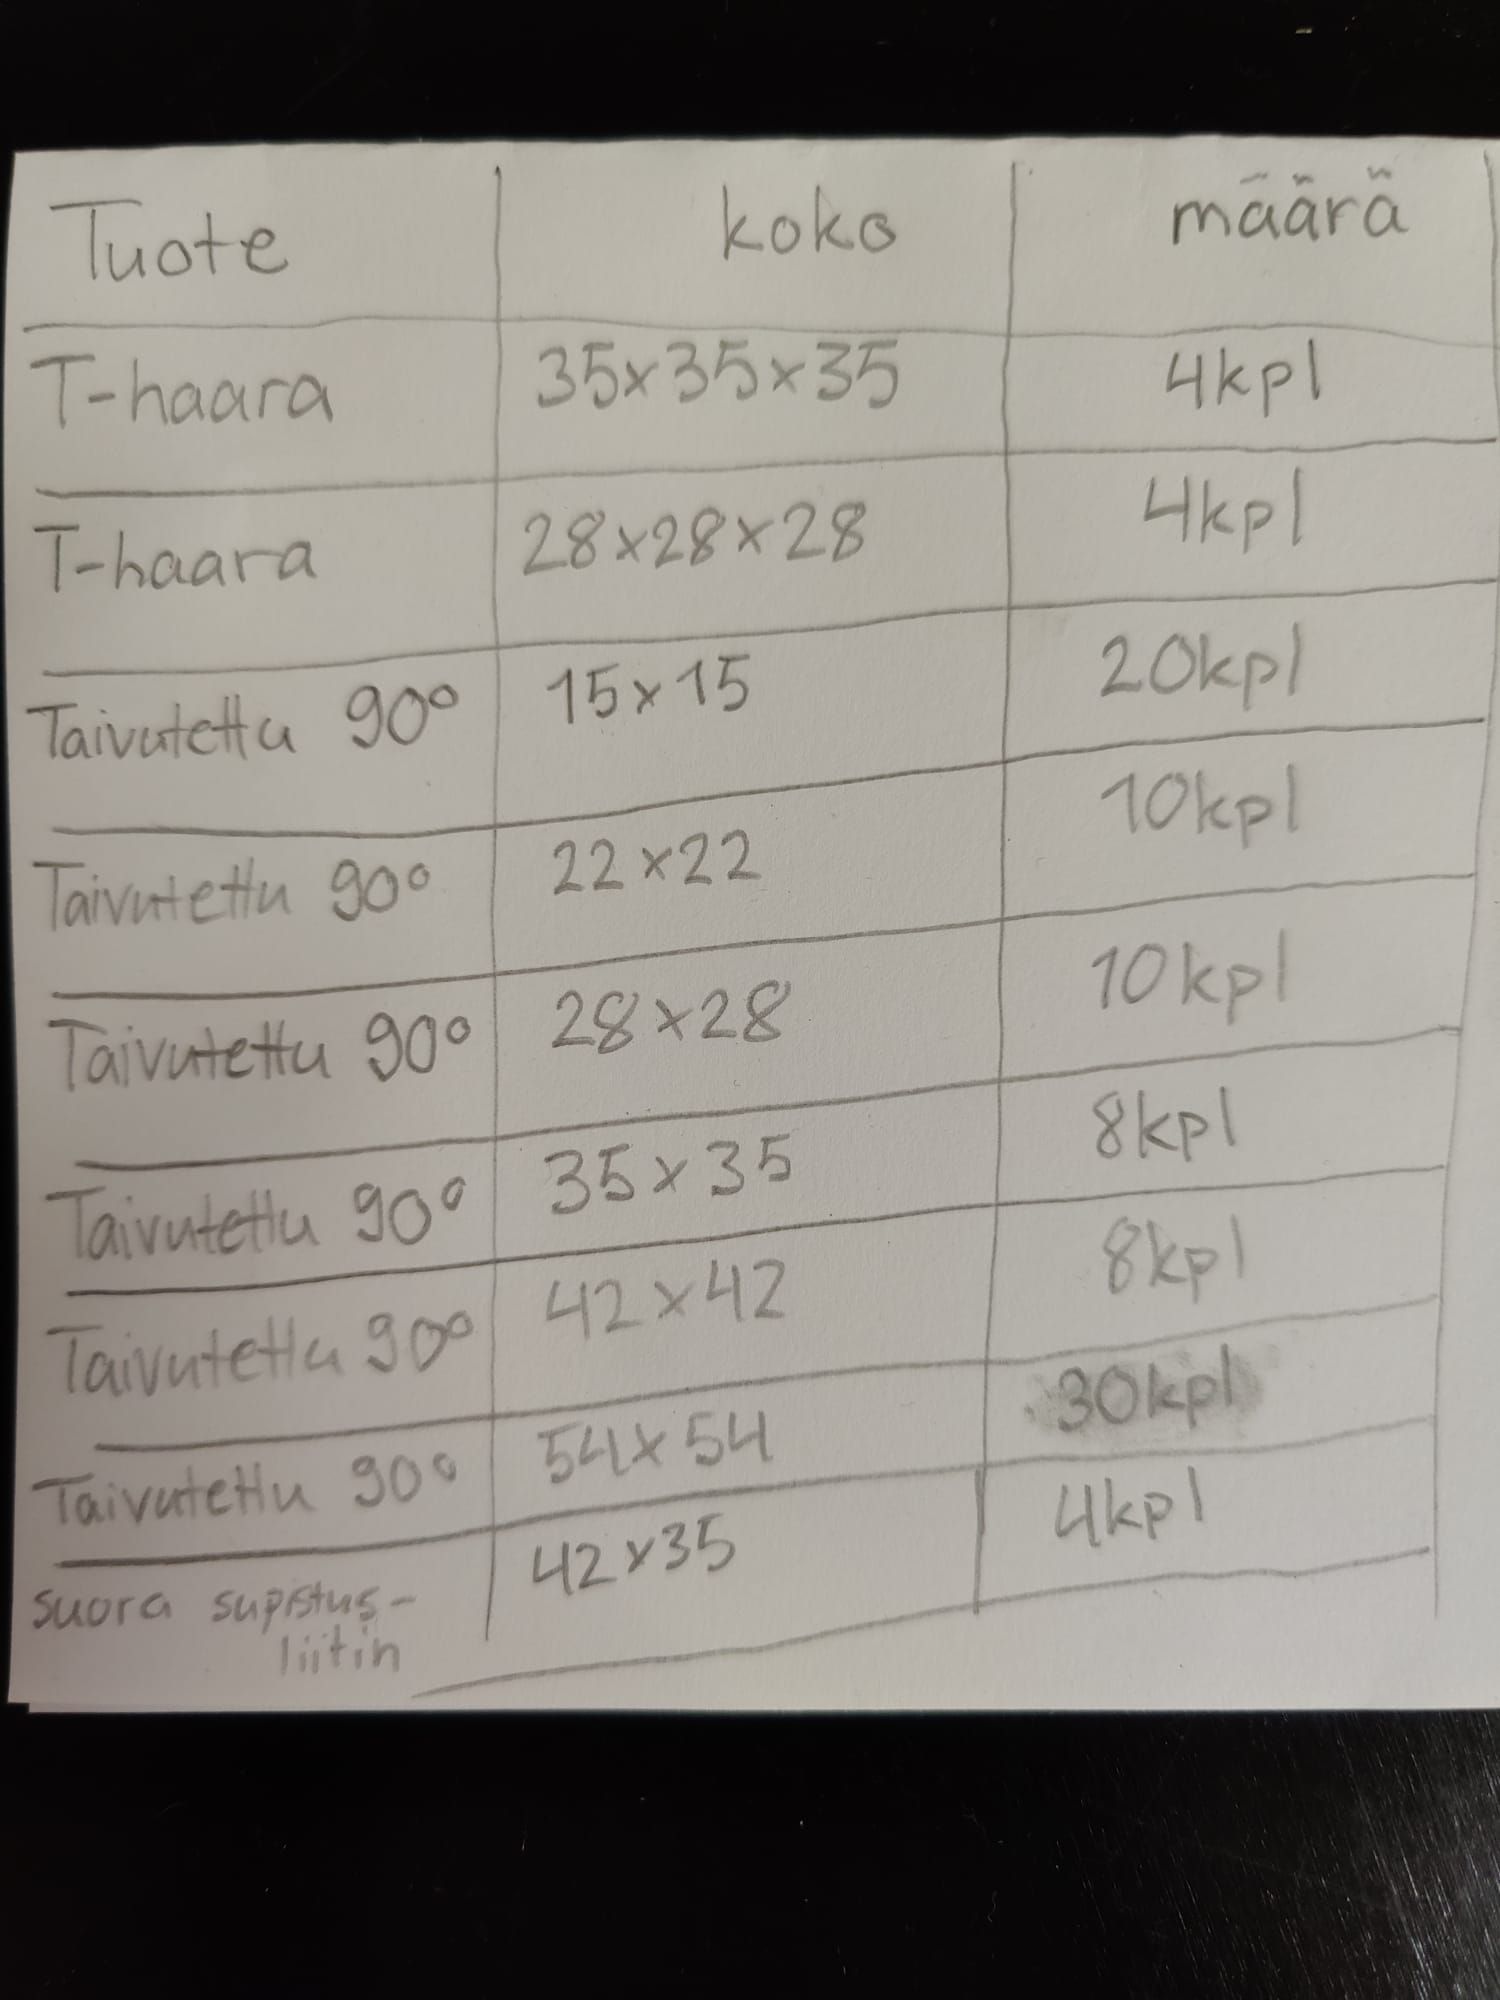 Tuote koko määrä
T-haara 35x35x35 4kpl
T-haara 28x28x28 4kpl
Taivutettu 90° 15x15 20kpl
Taivutettu 90° 22x22 10kpl
Taivutettu 90° 28x28 10kpl
Taivutettu 90° 35x35 8kpl
Taivutettu 90° 42x42 8kpl
Taivutettu 90° 54x54 30kpl
suora supistus- 42x35 4kpl
liitin